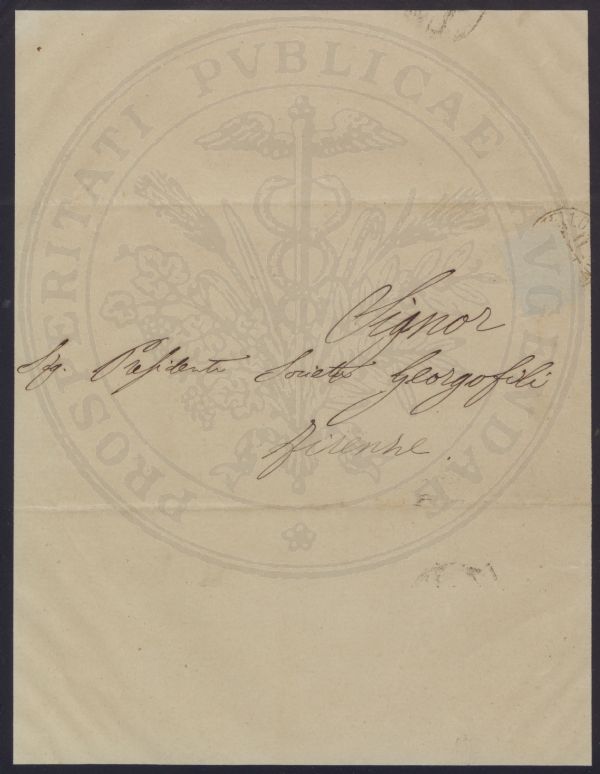 PROSPERITATI PVBLICAE AVGENDAE
Signor
Sig. Presidente Società Georgofili
Firenze.